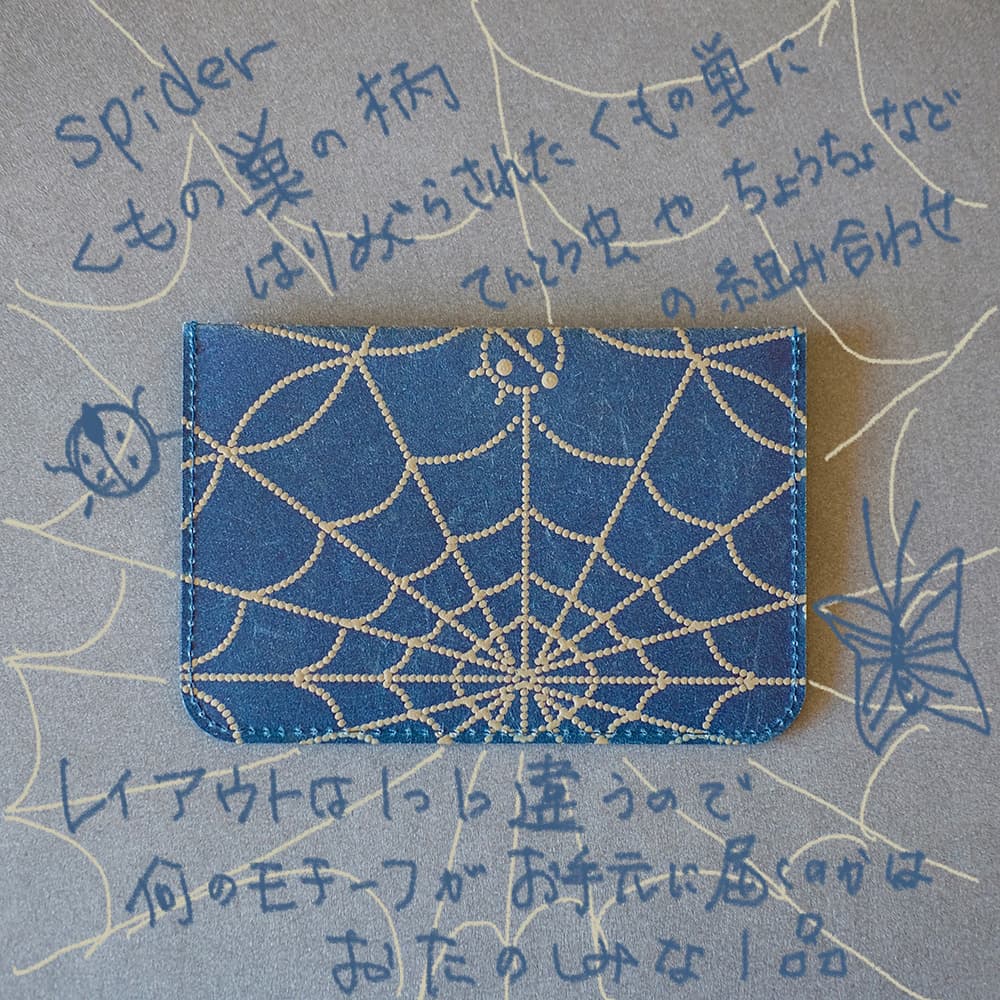 spider
くもの巣の柄
はりめぐらされたくもの巣に
てんとう虫やちょうちょなど
の組み合わせ
レイアウトは1つ1つ違うので
何のモチーフがお手元に届くのかは
おたのしみな1品